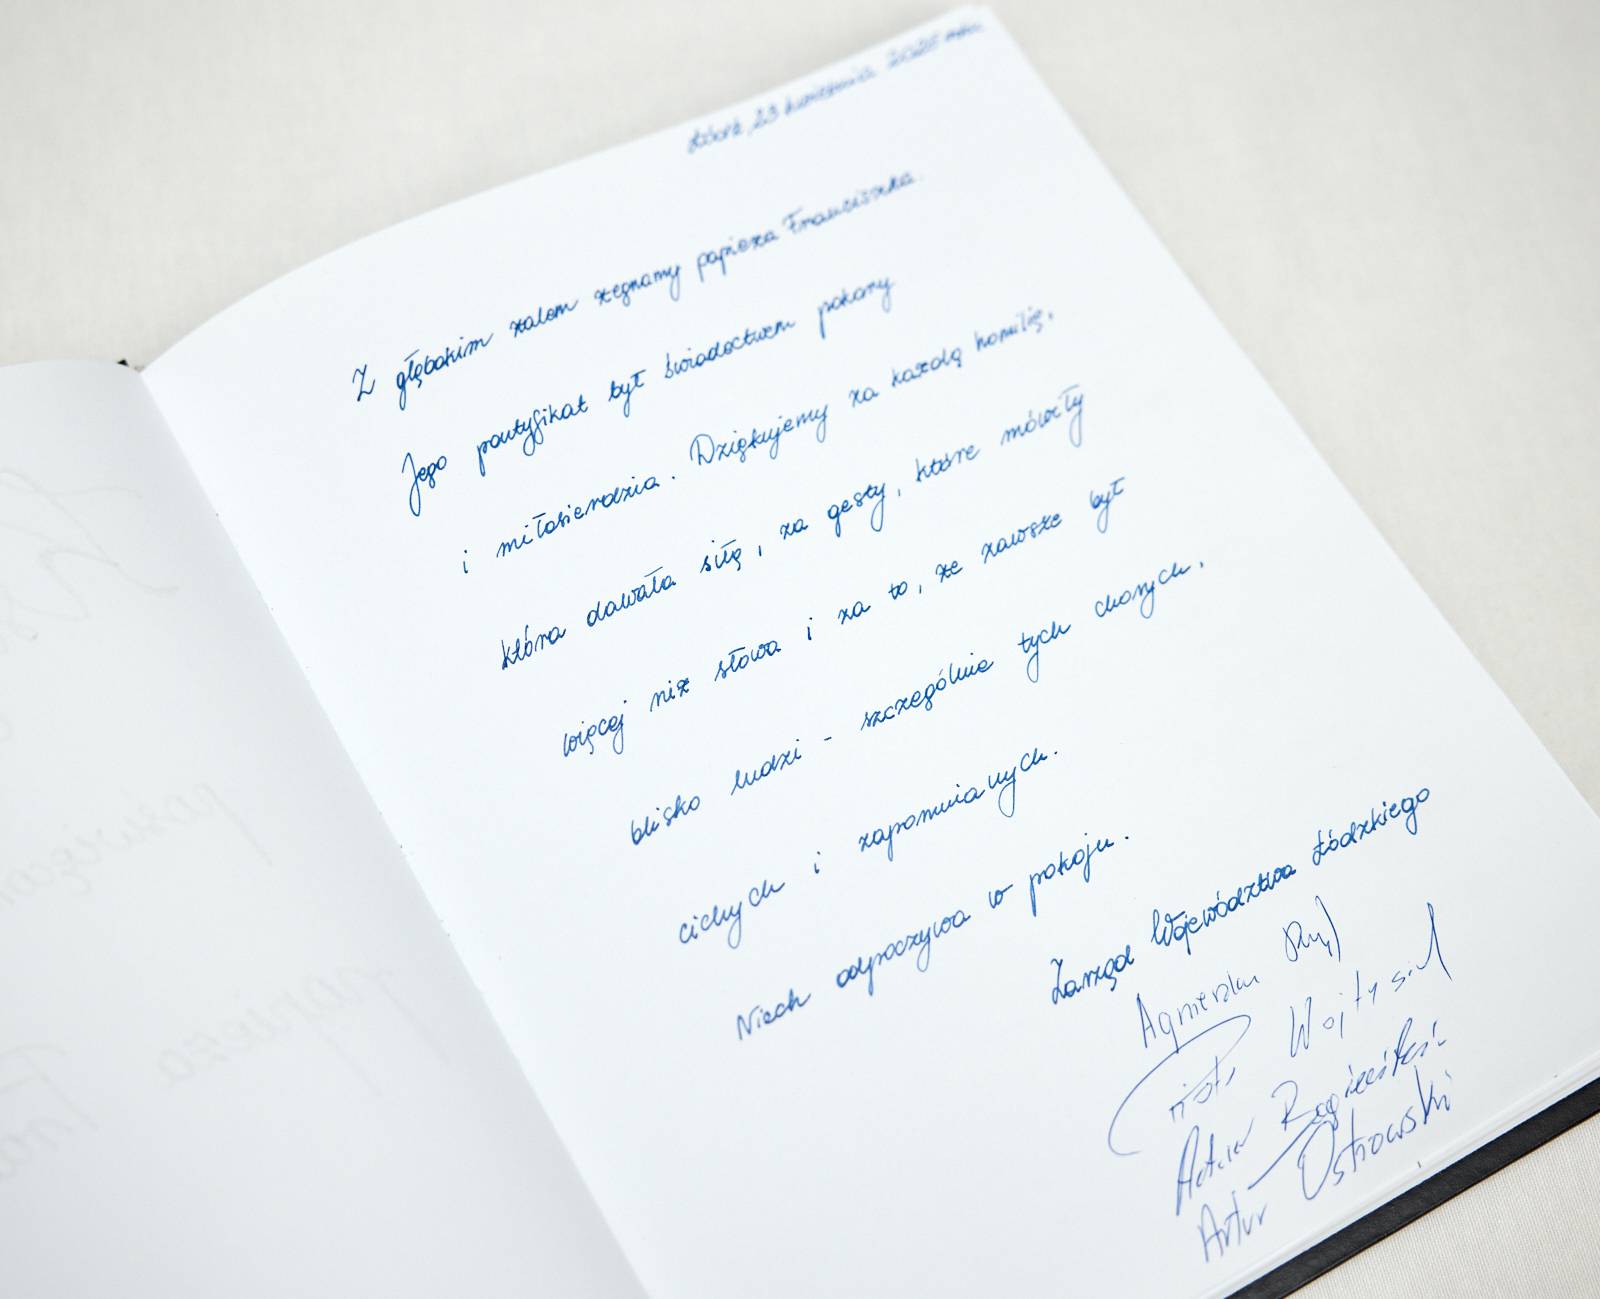 Łódź, 23 kwietnia 2025 roku
Z głębokim żalem żegnamy papieża Franciszka.
Jego pontyfikat był świadectwem pokory
i miłosierdzia. Dziękujemy za każdą homilię,
która dawała siłę, za gesty, które mówiły
więcej niż słowa i za to, że zawsze był
blisko ludzi - szczególnie tych chorych,
cichych i zapomnianych.
Niech odpoczywa w pokoju.
Zarząd Województwa Łódzkiego
Agnieszka
Piotr Wojtysiak
Artur
Artur Ostrowski
papieża